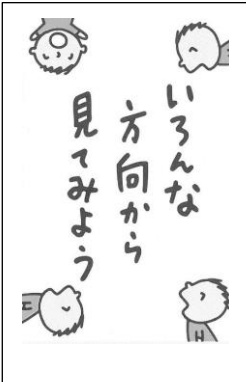 いろんな
方向から
見てみよう
H
H